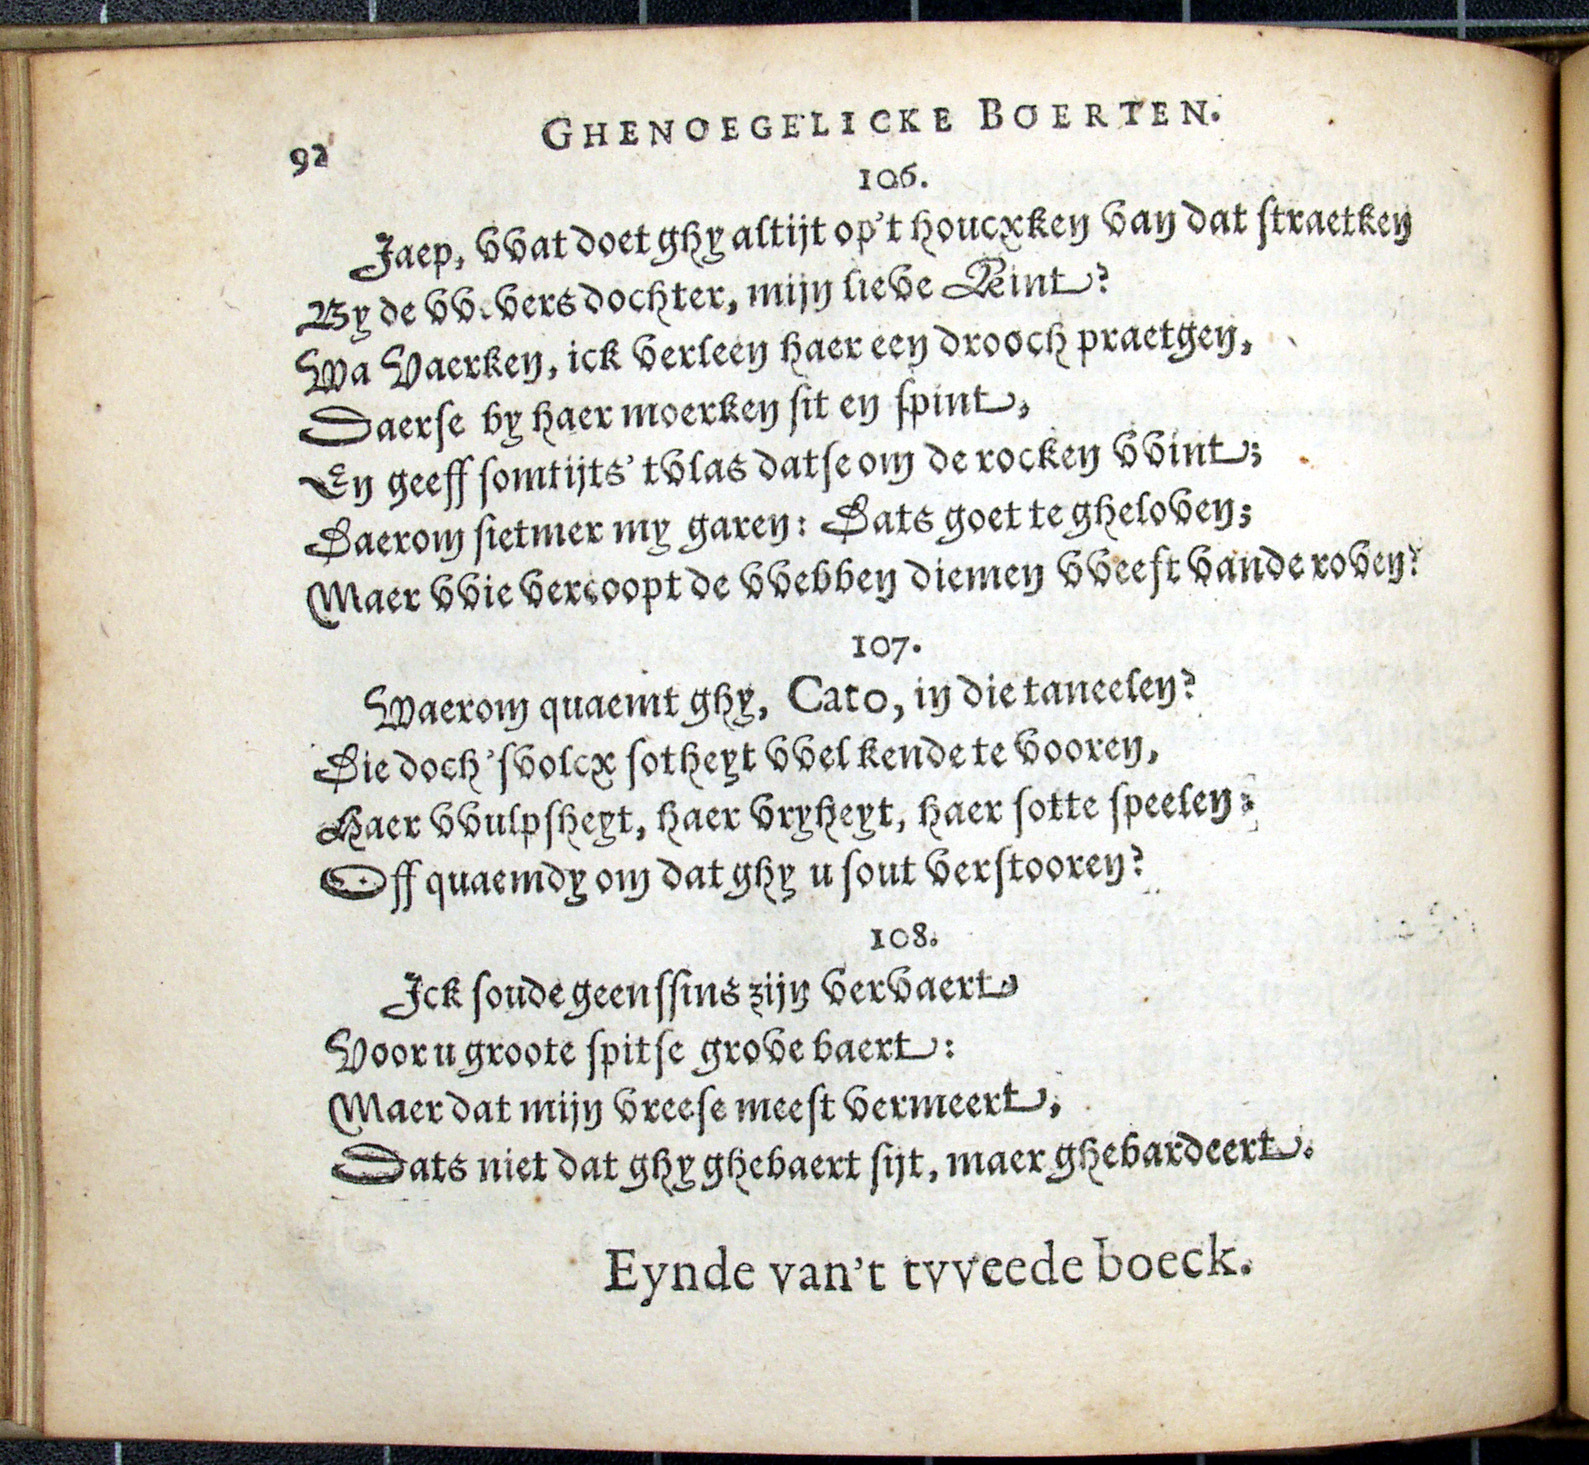 92
GHENOEGELICKE BOERTEN.
106.
Jaep, vvat doet ghy altijt op't houcxken van dat straetken
By de vvevers dochter, mijn lieve Keint?
Wa Vaerken, ick verleen haer een drooch praetgen,
Daerse by haer moerken sit en spint,
En geeff somtijts't vlas datse om de rocken vvint;
Daerom sietmer my garen: Dats goet te gheloven;
Maer vvie vercoopt de vvebben diemen vveeft vande roven?
107.
Waerom quaemt ghy, Cato, in die taneelen?
Die doch 'svolcx sotheyt vvel kende te vooren,
Haer vvulpsheyt, haer vryheyt, haer sotte speelen;
Off quaemdy om dat ghy u sout verstooren?
108.
Ick soude geenssins zijn vervaert
Voor u groote spitse grove baert:
Maer dat mijn vreese meest vermeert,
Dats niet dat ghy ghebaert sijt, maer ghebardeert.
Eynde van't tvveede boeck.